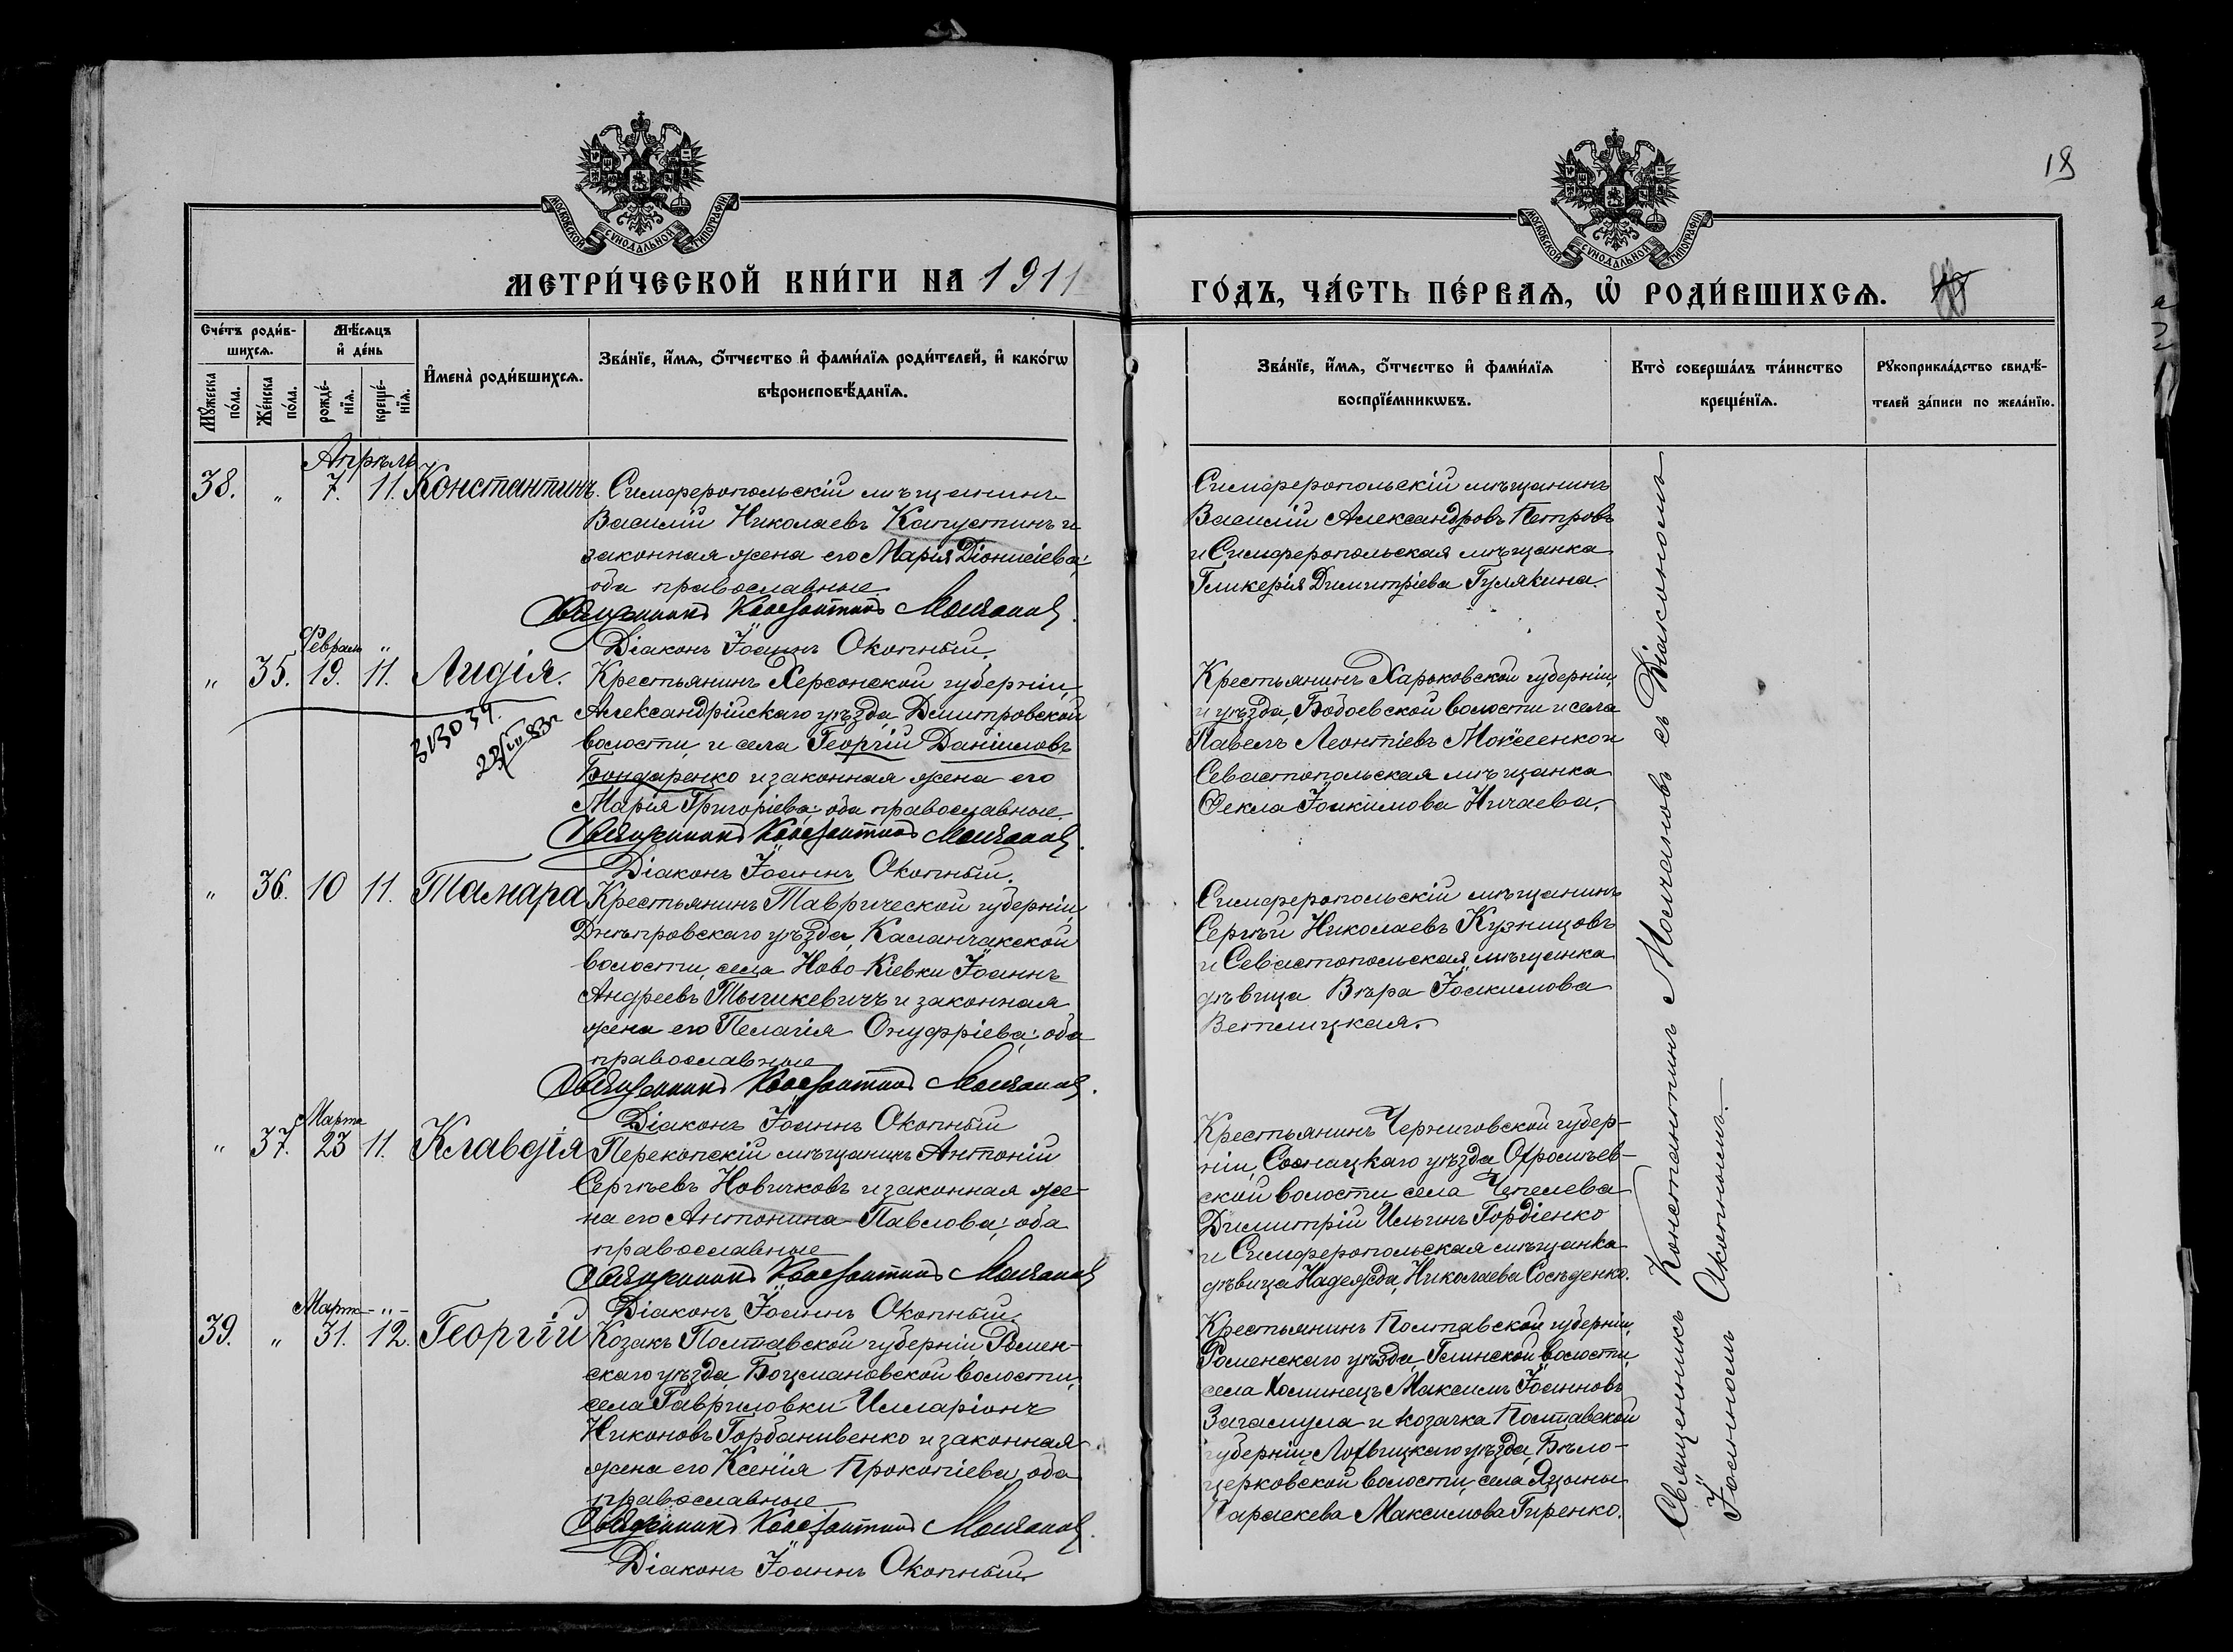 18
МОСКОВСКОЙ СУНОДАЛЬНОЙ ТИПОГРАФІИ
МОСКОВСКОЙ СУНОДАЛЬНОЙ ТИПОГРАФІИ
МЕТРИ́ЧЕСКОЙ КНИ́ГИ НА 1911
ГО́ДЪ, ЧА́СТЬ ПЕ́РВАѦ, Ѽ РОДИ́ВШИХСѦ.
Сче́тъ роди́в-
шихсѧ.
Мꙋ́жеска
по́ла.
Же́нска
по́ла.
Мѣ́сѧцъ
и҆ де́нь
рожде́-
нїѧ.
креще́-
нїѧ.
И҆мена̀ роди́вшихсѧ.
Зва́нїе, и҆́мѧ, ѻ҆́тчество и҆ фами́лїѧ роди́телей, и҆ како́гѡ
вѣроисповѣ́данїѧ.
Зва́нїе, и҆́мѧ, ѻ҆́тчество и҆ фами́лїѧ
воспрїе́мникѡвъ.
Кто̀ соверша́лъ та́инство
креще́нїѧ.
Рꙋкоприкла́дство свидѣ́-
телей за́писи по жела́нїю.
Апрѣль
38. " 7. 11. Константинъ.
Симферопольскій мѣщанинъ
Василій Николаевъ Капустинъ и
законная жена его Марія Діонисіева;
оба православные.
Священникъ Константинъ Молчановъ.
Діаконъ Іоаннъ Окопный.
Симферопольскій мѣщанинъ
Василій Александровъ Петровъ
и Симферопольская мѣщанка
Гликерія Димитріева Гулякина.
Февраль "
" 35. 19. 11. Лидія.
313034.
Крестьянинъ Херсонской губерніи,
Александрійскаго уѣзда, Дмитровской
волости и села Георгій Даніиловъ
Бондаренко и законная жена его
Марія Григоріева; оба православные.
Священникъ Константинъ Молчановъ.
Діаконъ Іоаннъ Окопный.
Крестьянинъ Харьковской губерніи
и уѣзда, Бабаевской волости и села
Павелъ Леонтіевъ и
Севастопольская мѣщанка
Ѳекла Іоакимова Ничаева.
" 36. 10 11. Тамара
Крестьянинъ Таврической губерніи
Днѣпровскаго уѣзда, Каланчакской
волости, села Ново-Кіевки Іоаннъ
Андреевъ и законная
жена его Пелагія Онуфріева; оба
православные
Священникъ Константинъ Молчановъ.
Діаконъ Іоаннъ Окопный
Симферопольскій мѣщанинъ
Сергѣй Николаевъ Кузнецовъ
и Севастопольская мѣщанка
дѣвица Вѣра Іоакимова
Ветлицкая.
Марта
" 37. 23 11. Клавдія
Перекопскій мѣщанинъ Антоній
Сергѣевъ Новичковъ и законная же-
на его Антонина Павлова; оба
православные
Священникъ Константинъ Молчановъ
Діаконъ Іоаннъ Окопный.
Крестьянинъ Черниговской губер-
ніи, Сосницкаго уѣзда,
ской волости села Чепелева
Димитрій Ильинъ Гордіенко
и Симферопольская мѣщанка
дѣвица Надежда Николаева Сосѣденко.
Мартъ - " -
39. " 31. 12. Георгій
Козакъ Полтавской губерніи, Ромен-
скаго уѣзда, Боцмановской волости,
села Гавриловки Илларіонъ
Никоновъ и законная
жена его Ксенія Прокопіева; оба
православные
Священникъ Константинъ Молчановъ.
Діаконъ Іоаннъ Окопный.
Крестьянинъ Полтавской губерніи,
Роменскаго уѣзда, Глинской волости,
села Хоминецъ Максимъ Іоанновъ
и козачка Полтавской
губерніи, Лохвицкаго уѣзда, Бѣло-
церковской волости, села Яцыны
Параскева Максимова Гиренко.
Священникъ Константинъ Молчановъ съ Діакономъ
Іоанномъ Окопнымъ.